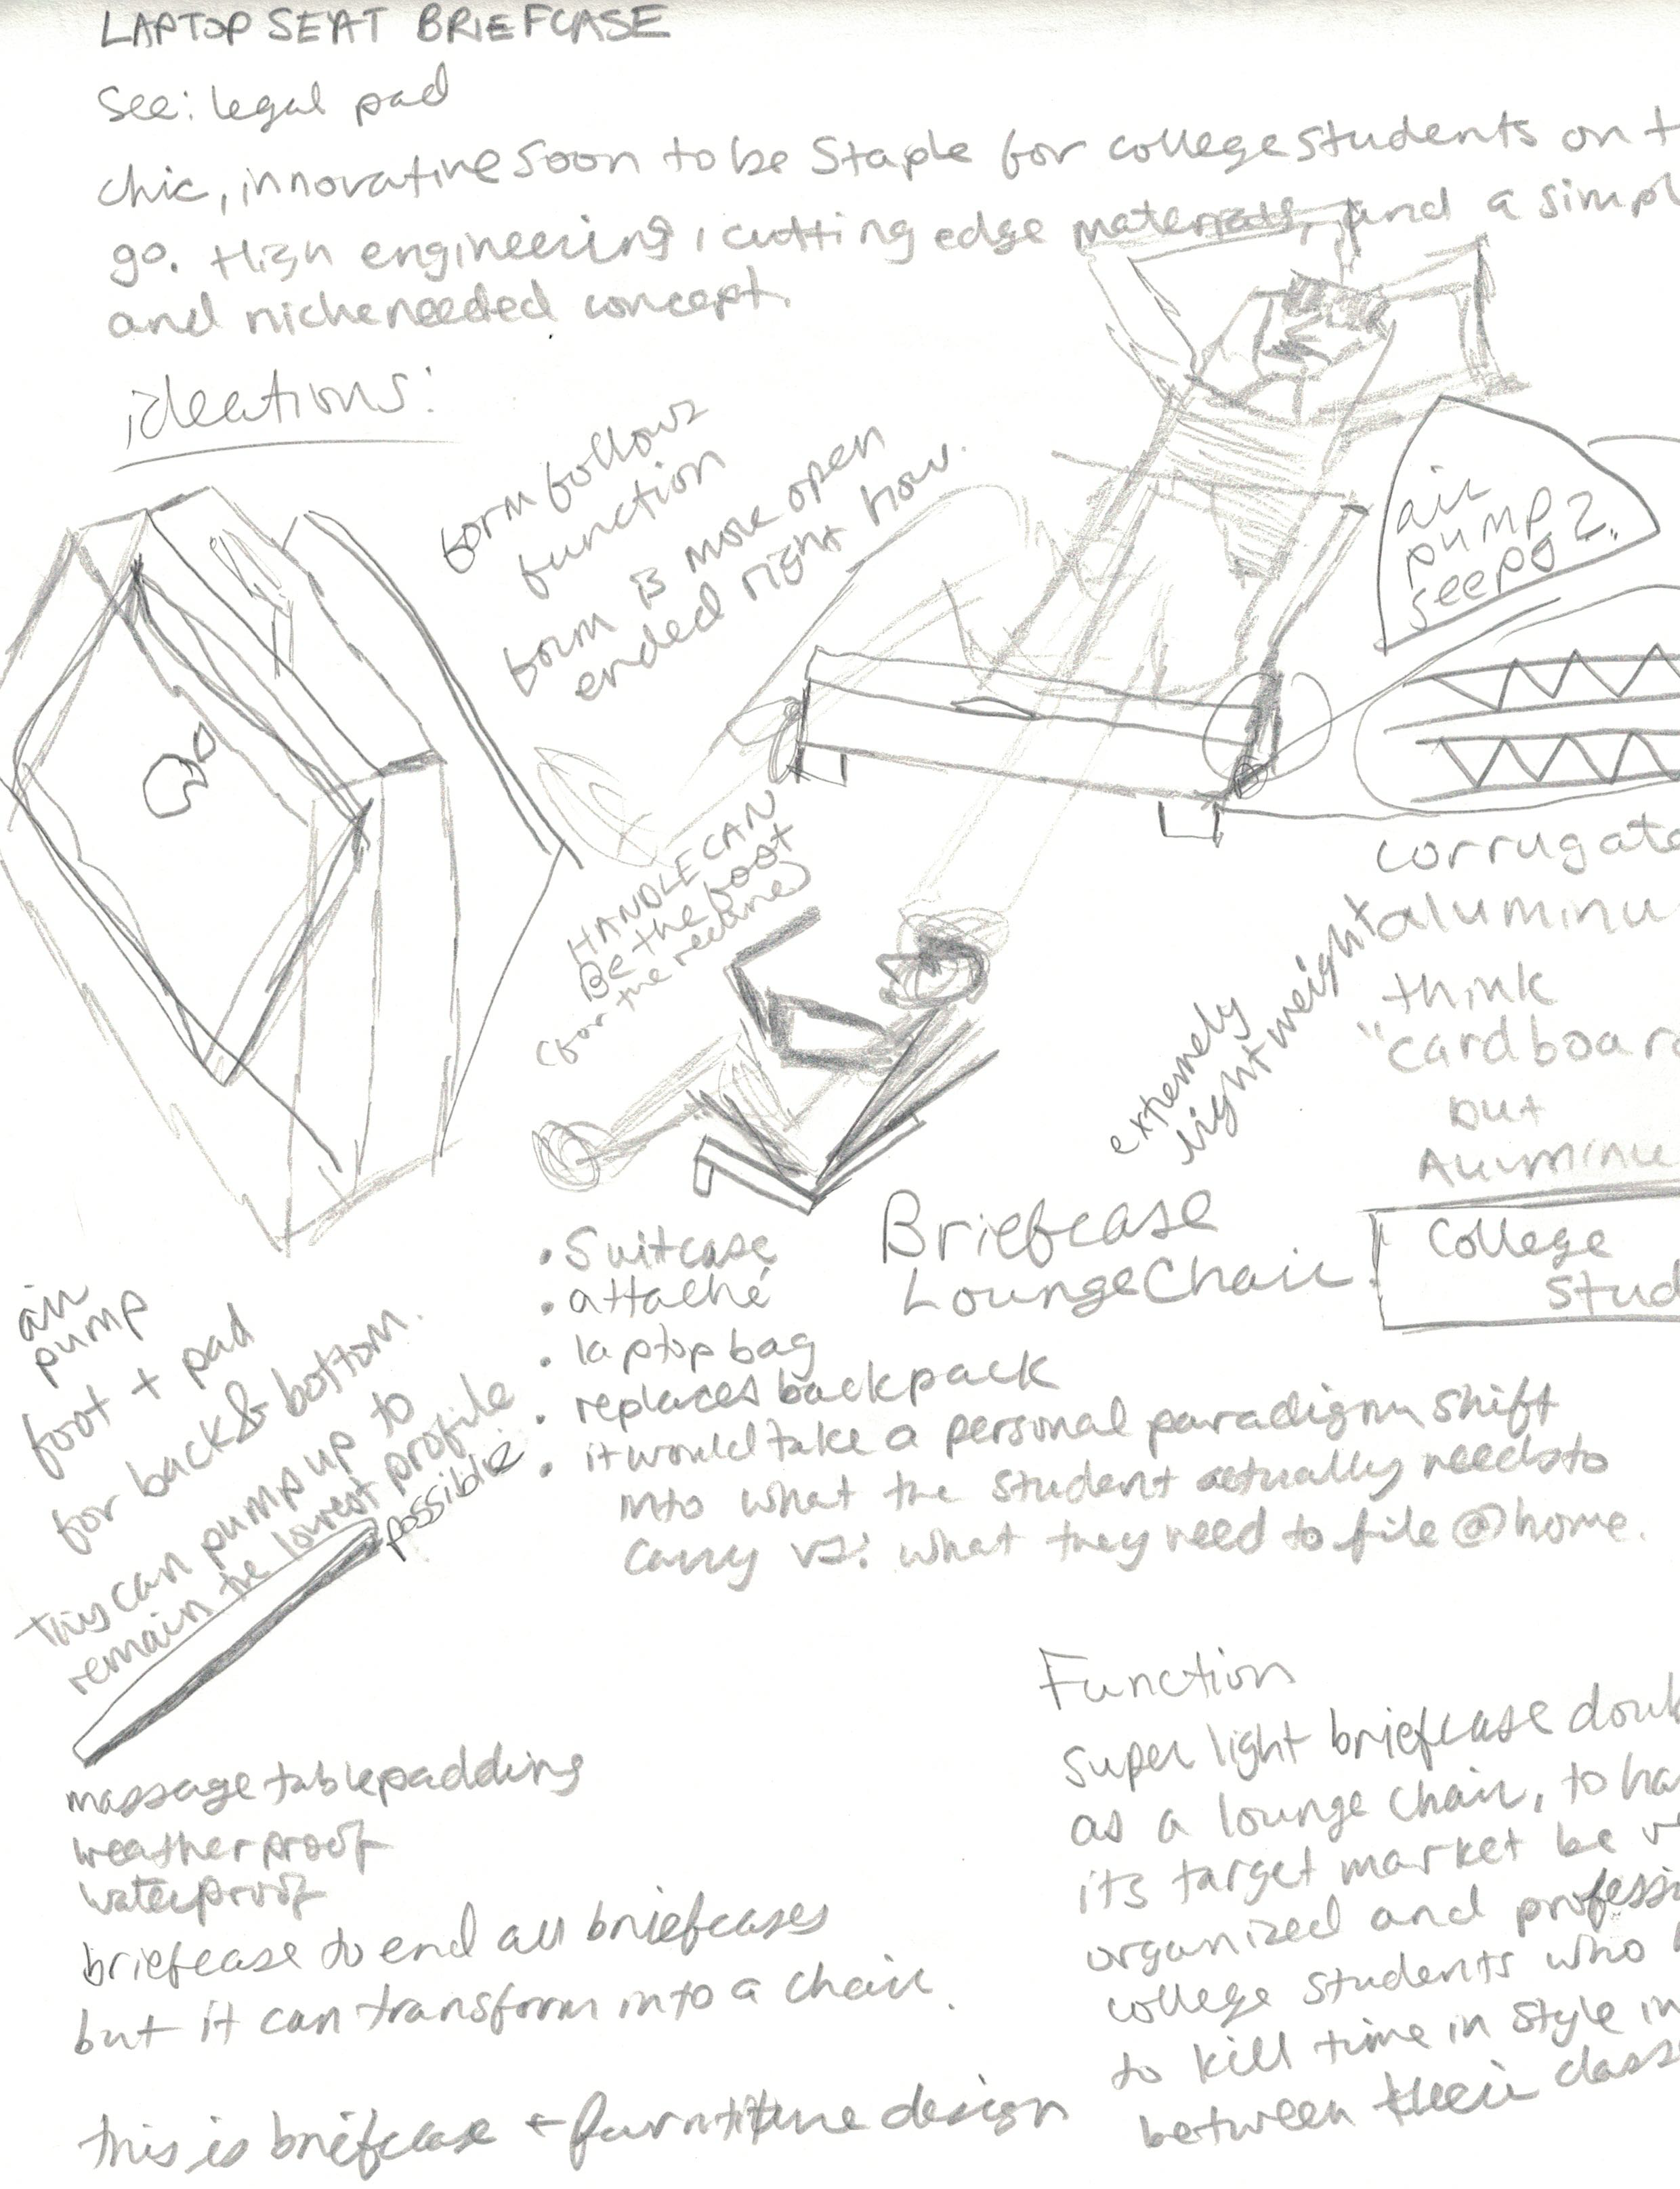 LAPTOP SEAT BRIEFCASE
See: legal pad
chic, innovative soon to be staple for college students on t
go. High engineering, cutting edge materials, and a simpl
and niche needed concept.
ideations:
form follows
function
form is more open
ended right now.
air
pump
see pg 2.
HANDLE CAN
Be the foot
(for the recline)
corrugate
aluminu
think
"cardboar
but
Aluminu
extremely
light weight
Briefcase
Lounge Chair
College
Stud
• Suitcase
• attaché
• laptop bag
• replaces backpack
• it would take a personal paradigm shift
into what the student actually needs to
carry vs: what they need to file @ home.
air
pump
foot + pad
for back & bottom.
this can pump up to
remain the lowest profile
possible
massage table padding
weatherproof
waterproof
briefcase to end all briefcases
but it can transform into a chair.
this is briefcase + furntiture design
Function
Super light briefcase doub
as a lounge chair, to ha
its target market be v
organized and professi
college students who
to kill time in style in
between their class